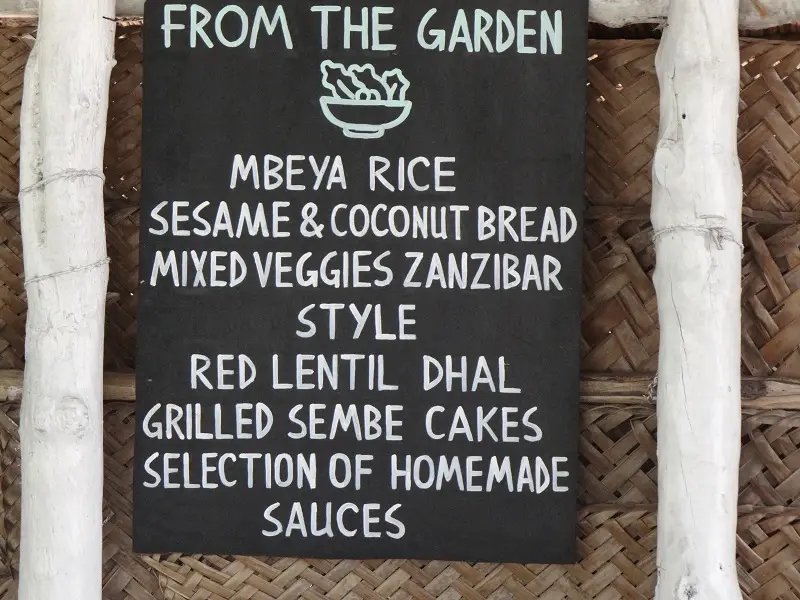 FROM THE GARDEN
MBEYA RICE
SESAME & COCONUT BREAD
MIXED VEGGIES ZANZIBAR
STYLE
RED LENTIL DHAL
GRILLED SEMBE CAKES
SELECTION OF HOMEMADE
SAUCES